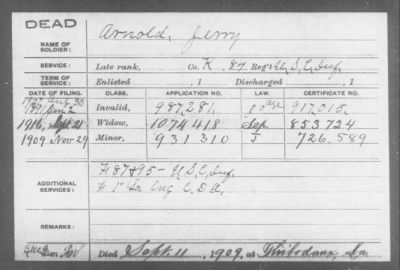 DEAD
NAME OF SOLDIER: Arnold, Jerry
SERVICE: Late rank, Co. K, 87 Reg't U.S.C. Inf.
TERM OF SERVICE: Enlisted , 1 Discharged , 1
DATE OF FILING. CLASS. APPLICATION NO. LAW. CERTIFICATE NO.
Invalid, 987281,
1916, Sept 21 Widow, 1074418 Sep. 853724
1909 Nov 29 Minor, 931310 726.589
ADDITIONAL SERVICES: 87 & 95 - U.S.C. Inf.
Eng
REMARKS:
Died Sept. 11, 1909, at Thibodaux, La.